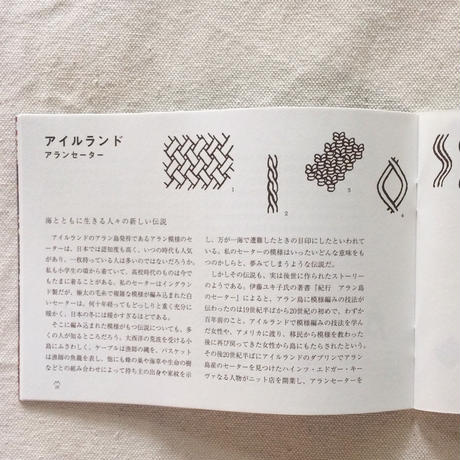 アイルランド
アランセーター
1
2
3
4
海とともに生きる人々の新しい伝説
アイルランドのアラン島発祥であるアラン模様のセ
ーターは、日本では認知度も高く、いつの時代も人気
があり、一枚持っている人は多いのではないだろうか。
私も小学生の頃から着ていて、高校時代のものは今で
もたまに着ることがある。私のセーターはイングラン
ド製だが、極太の毛糸で複雑な模様が編み込まれた白
いセーターは、何十年経ってもどっしりと重く充分に
暖かく、日本の冬には暖かすぎるほどである。
そこに編み込まれた模様がもつ伝説についても、多
くの人が知るところだろう。大西洋の荒波を受ける小
島にふさわしく、ケーブルは漁師の縄を、バスケット
は漁師の魚籠を表し、他にも蜂の巣や海草や生命の樹
などとの組み合わせによって持ち主の出身や家紋を示
し、万が一海で遭難したときの目印にしたといわれて
いる。私のセーターの模様はいったいどんな意味をも
つのかしらと、夢みてしまうような伝説だ。
しかしその伝説も、実は後世に作られたストーリー
のようである。伊藤ユキ子氏の著書『紀行 アラン島
のセーター』によると、アラン島に模様編みの技法が
伝わったのは19世紀半ばから20世紀の初めで、わずか
百年前のこと。アイルランドで模様編みの技法を学ん
だ女性や、アメリカに渡り、移民から模様を教わった
後に再び戻ってきた女性から島にもたらされたという。
その後20世紀半ばにアイルランドのダブリンでアラン
島産のセーターを見つけたハインツ・エドガー・キー
ヴァなる人物がニット店を開業し、アランセーターを